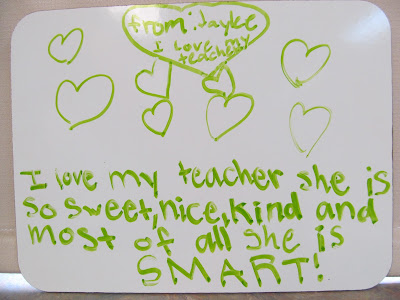 from: Jayke
I love my
teacher!
I love my teacher she is
so sweet,nice,kind and
most of all she is
SMART!